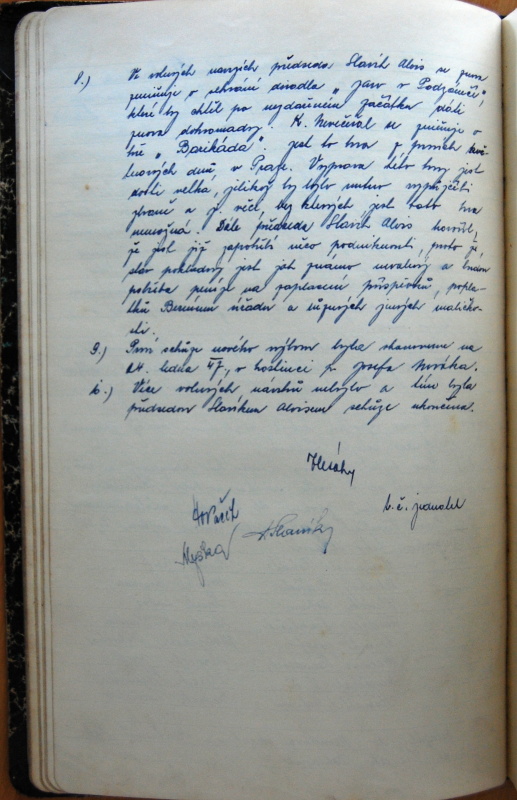 8.) Ve volných návrzích předseda Slavík Alois se znova
zmiňuje o sehrání divadla „Jaro v Podzámčí",
které by chtěl po nezdařeném začátku dáti
znova dohromady. K. Nevečeřal se zmiňuje o
hře „Barikáda". Jest to hra z prvních květ-
nových dnů, v Praze. Výprava této hry jest
dosti velká, jelikož by bylo nutno vypůjčiti
zbraně a j. věci, bez kterých jest tato hra
nemožná. Dále předseda Slavík Alois hovořil,
že jest již zapotřebí něco podniknouti, proto že
stav pokladny jest jak známo nevalný a budou
potřeba peníze na zaplacení příspěvků, popla-
tků Bernímu úřadu a různých jiných maličko-
stí.
9.) První schůze nového výboru byla stanovena na
24. ledna 47, v hostinci p. Josefa Nováka.
10.) Více volných návrhů nebylo a tím byla
předsedou Slavíkem Aloisem schůze ukončena.
t. č. jednatel
A. Slavík